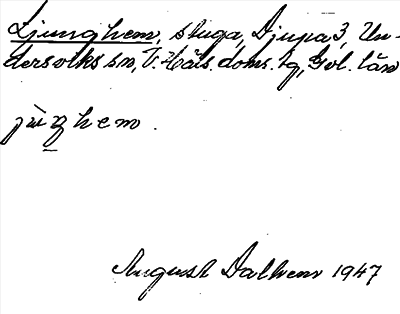 Ljunghem, stuga, Djupa 3, Un-
dersviks sn, V. Häls. doms. tg, Gvl. län
jùŋhem.
August Dalhem 1947